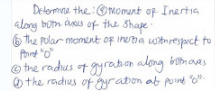 Determine the: ⓐ Moment of Inertia
along both axes of the shape.
ⓑ the Polar moment of inertia with respect to
Point "O"
ⓒ the radius of gyration along both axes
ⓓ the radius of gyration at point "O".